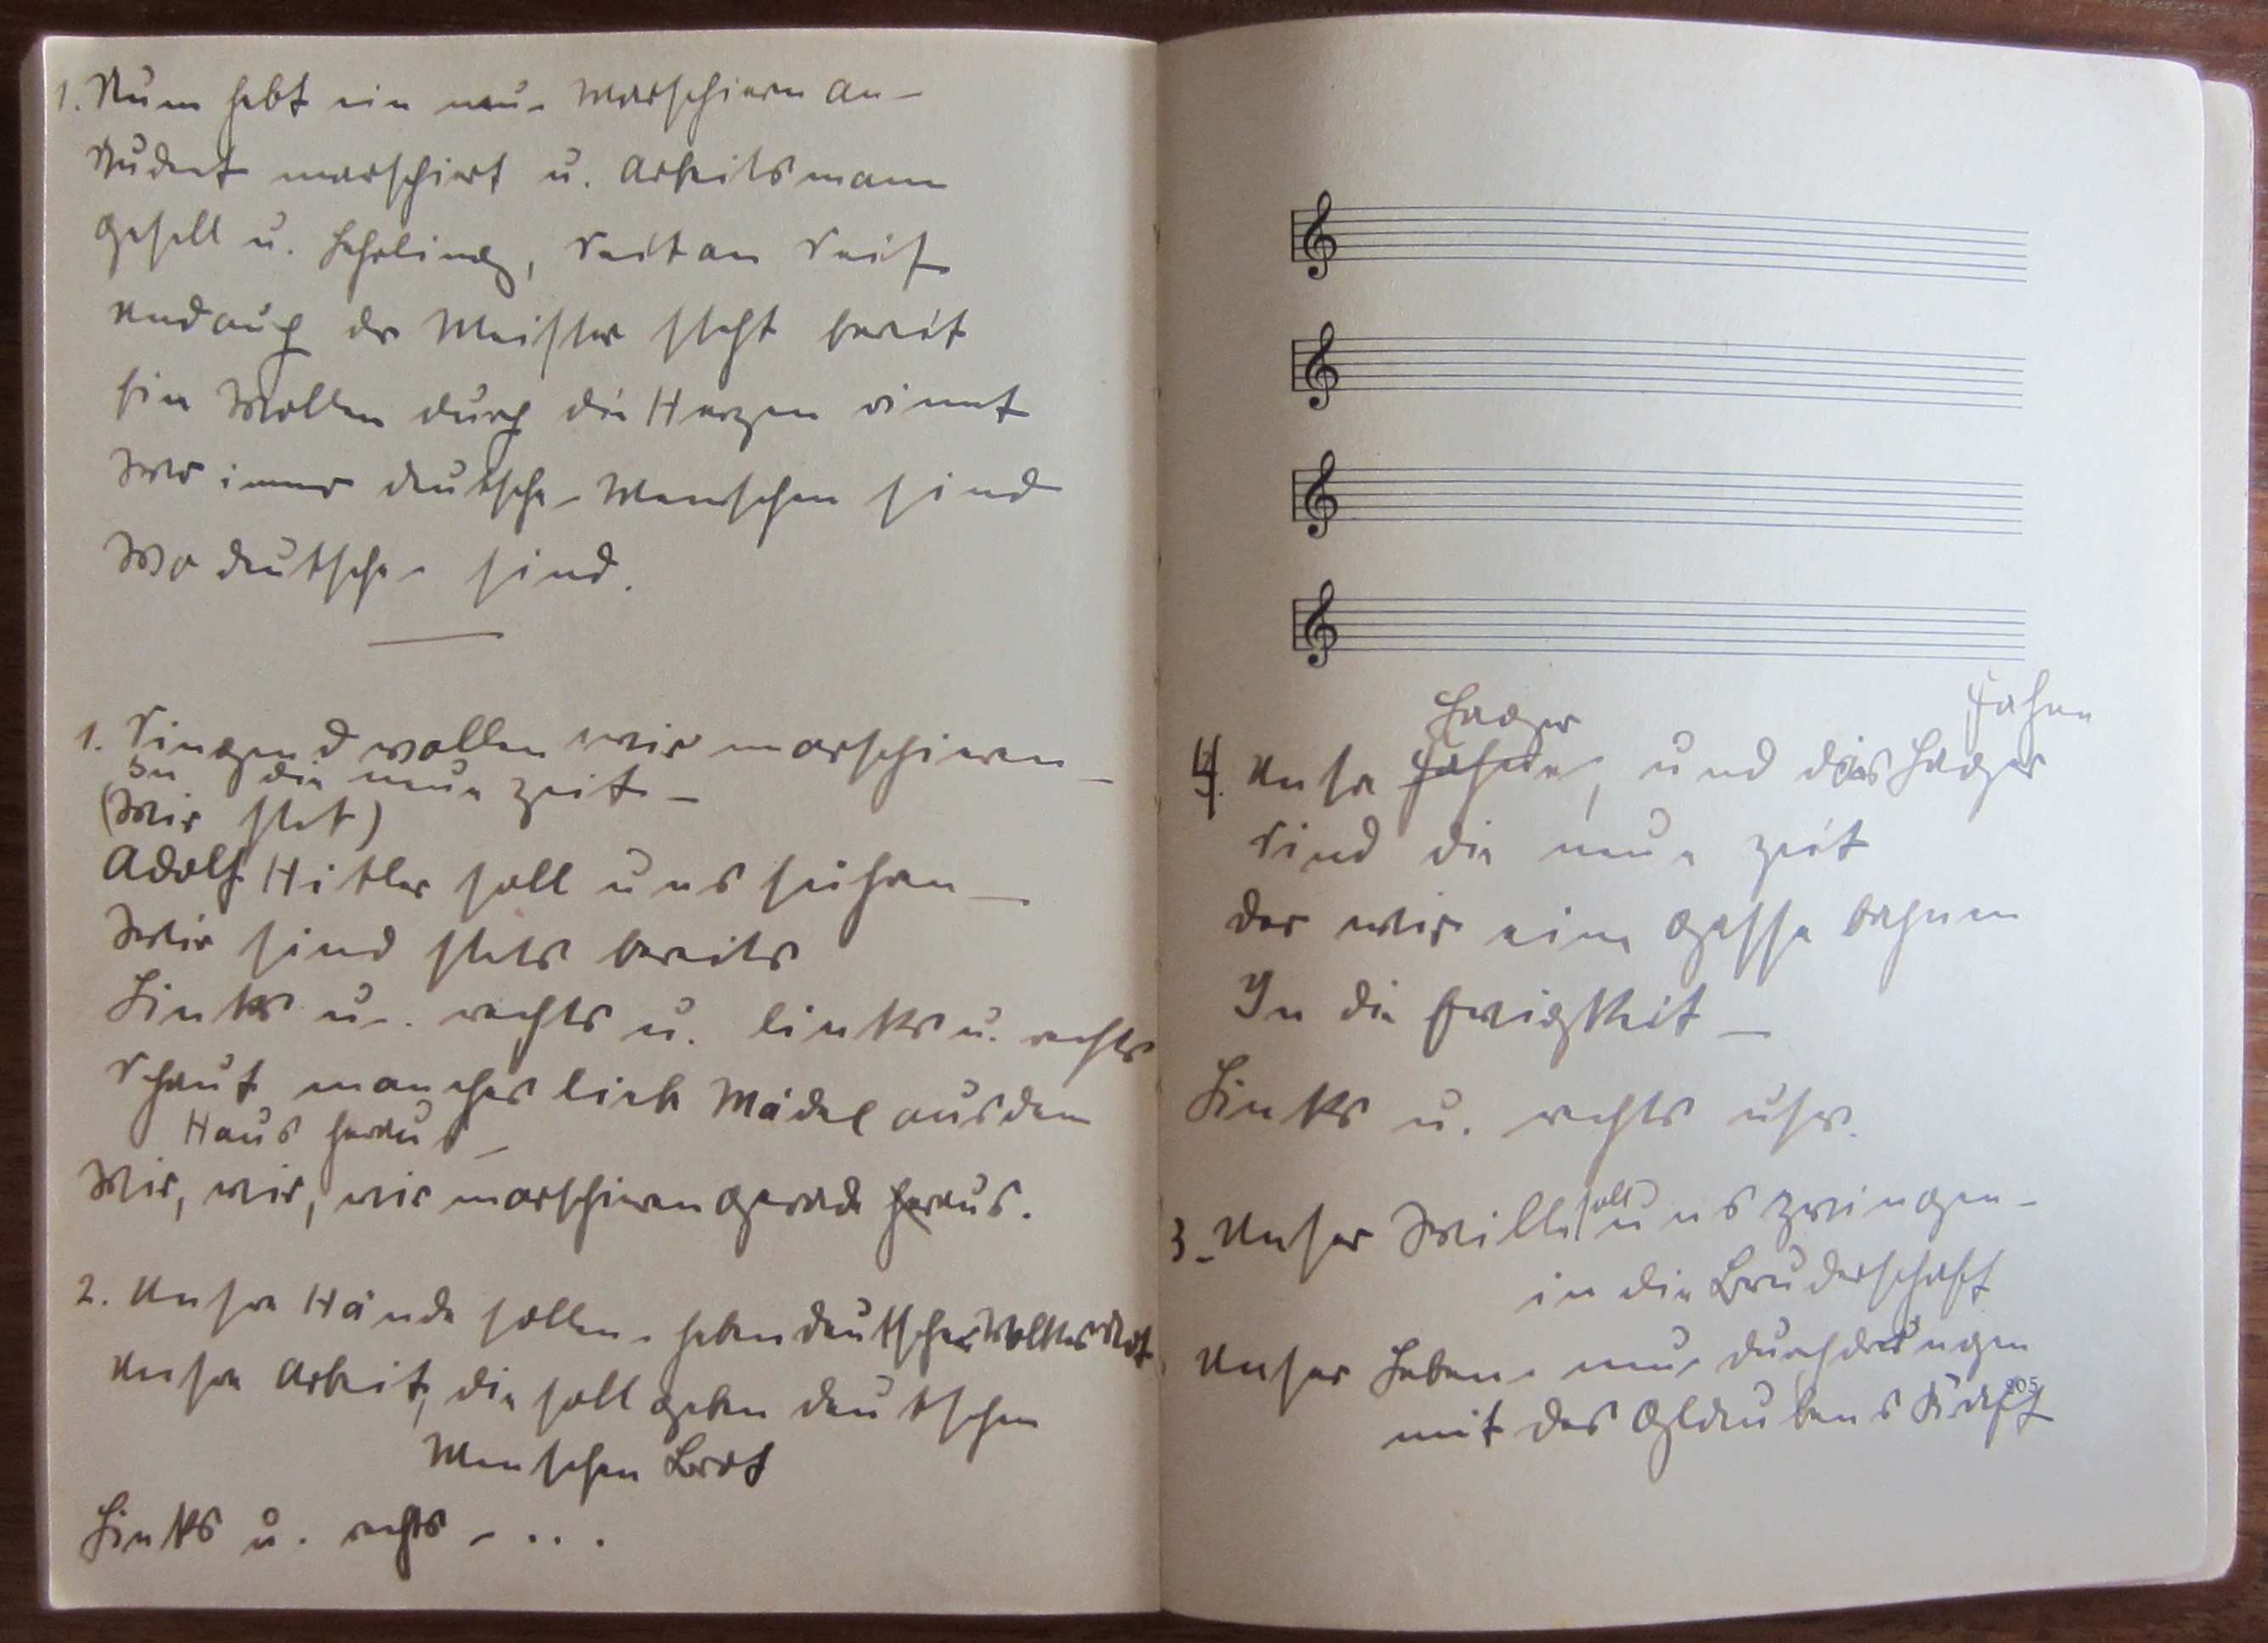 1. Nun hebt ein neu Marschieren an –
Student marschiert u. Arbeitsmann
Gesell u. Lehrling, Seit an Seit
und auch der Meister steht bereit
Ein Wollen durch die Herzen rinnt
Wo immer deutsche Menschen sind
Wo deutsche sind.
1. Singend wollen wir marschieren –
In die neue Zeit –
(Wir stet)
Adolf Hitler soll uns führen –
Wir sind stets bereits
Links u. rechts u. links u. rechts
Schaut manches lieb Mädel aus dem
Haus heraus –
Wir, wir, wir marschieren gerade heraus.
2. Unsre Hände sollen heben deutsches Volkes Not
Unsre Arbeit, die soll geben deutschen
Menschen Brot
Links u. rechts – ...
Lager Fahne
4. Unsre Fahne, und das Lager
Sind die neue Zeit
der wir eine Gasse bahnen
In die Ewigkeit –
Links u. rechts usw.
3. Unser Wille soll uns zwingen –
in die Bruderschaft
Unser Leben neu durchdringen
mit des Glaubens Kraft
205